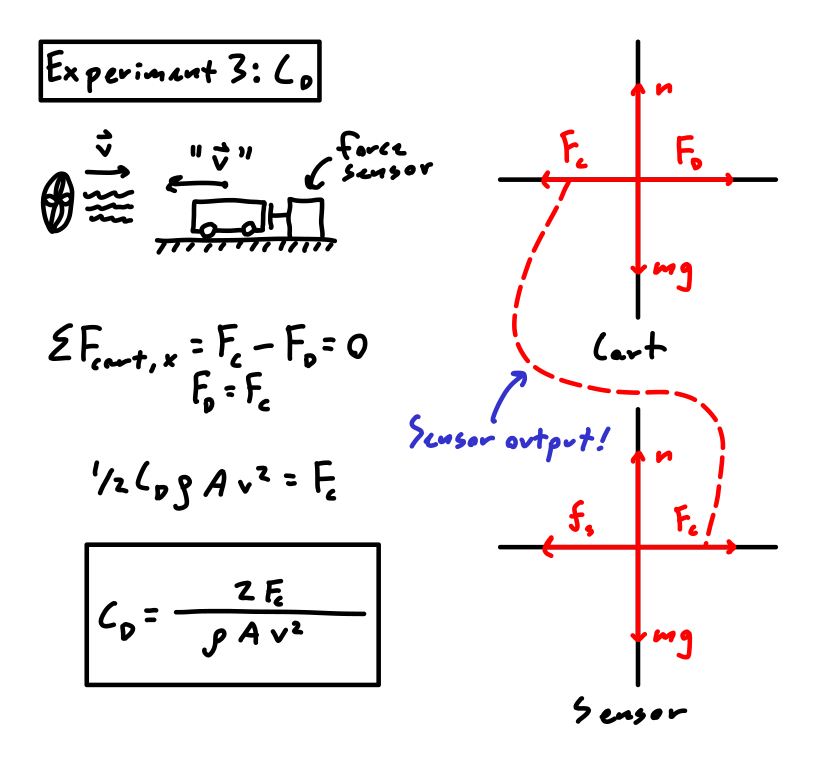 Experiment 3: C_D
v⃗
"v⃗"
force
sensor
ΣF_cart,x = F_c - F_D = 0
F_D = F_c
1/2 C_D ρ A v² = F_c
C_D = 2 F_c / ρ A v²
n
F_c
F_D
mg
Cart
Sensor output!
n
f_s
F_c
mg
Sensor